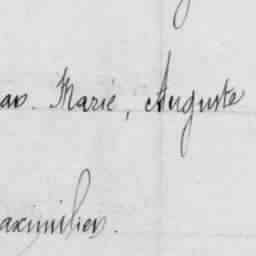 as. Marie, Auguste
aximilien.